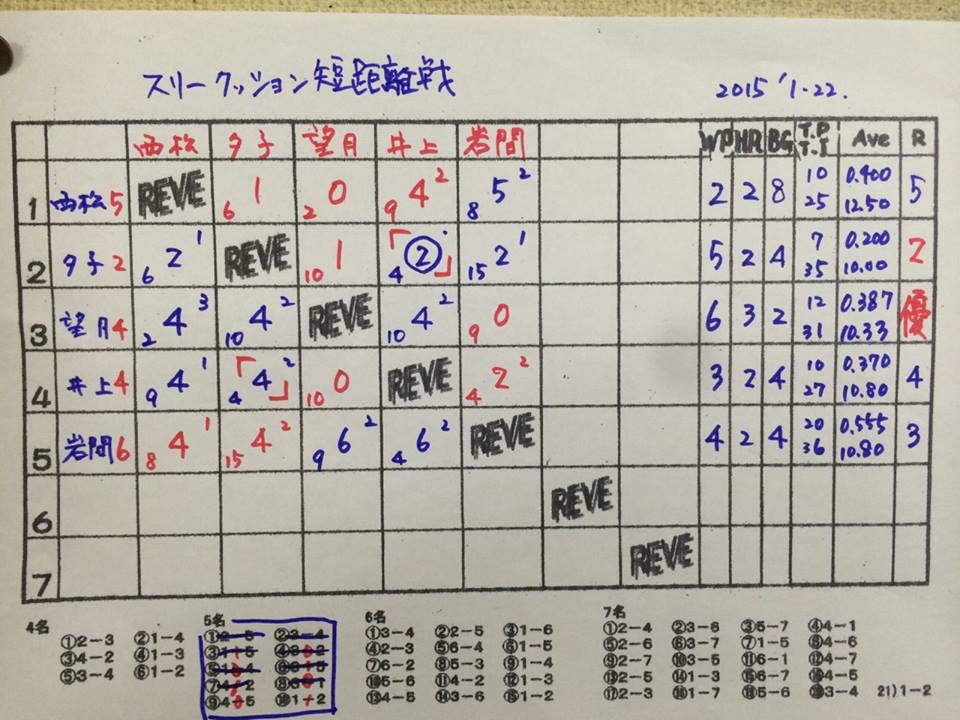 スリークッション短距離戦 2015 '1.22.
西松 夕子 望月 井上 岩間 WP HR BG T.P T.I Ave R
1 西松 5 REVE 6 1 2 0 9 4 2 8 5 2 2 2 8 10 25 0.400 12.50 5
2 夕子 2 6 2 1 REVE 10 1 4 「②」 15 2 1 5 2 4 7 35 0.200 10.00 2
3 望月 4 2 4 3 10 4 2 REVE 10 4 2 9 0 6 3 2 12 31 0.387 10.33 優
4 井上 4 9 4 1 4 「4 2」 10 0 REVE 4 2 2 3 2 4 10 27 0.370 10.80 4
5 岩間 6 8 4 1 15 4 2 9 6 2 4 6 2 REVE 4 2 4 20 36 0.555 10.80 3
6 REVE
7 REVE
4名
①2-3 ②1-4
③4-2 ④1-3
⑤3-4 ⑥1-2
5名
①2-5 ②3-4
③1-5 ④3-2
⑦4-2
⑨4-5 ⑩1-2
6名
①3-4 ②2-5 ③1-6
④2-3 ⑤6-4 ⑥1-5
⑦6-2 ⑧5-3 ⑨1-4
⑩5-6 ⑪4-2 ⑫1-3
⑬4-5 ⑭3-6 ⑮1-2
7名
①2-4 ②3-6 ③5-7 ④4-1
⑤2-6 ⑥3-7 ⑦1-5 ⑧4-6
⑨2-7 ⑩3-5 ⑪6-1 ⑫4-7
⑬2-5 ⑭1-3 ⑮6-7 ⑯4-5
⑰2-3 ⑱1-7 ⑲5-6 ⑳3-4 21)1-2